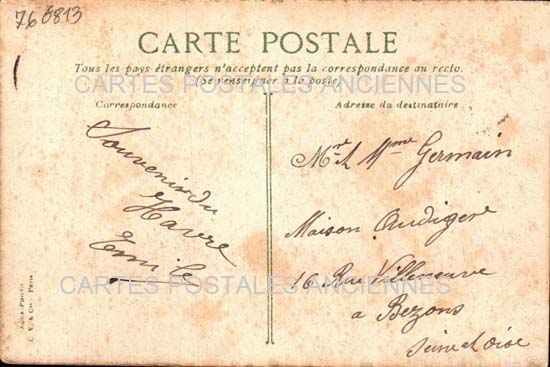 760813
CARTE POSTALE
Tous les pays étrangers n'acceptent pas la correspondance au recto.
(Se renseigner à la poste)
CARTES POSTALES ANCIENNES
Correspondance
Adresse du destinataire
Souvenir du
Havre
Emile
Mr & Mme Germain
Maison Audigere
16 Rue Villeneuve
a Bezons
Seine et Oise
CARTES POSTALES ANCIENNES
Aqua-Photo
Paris